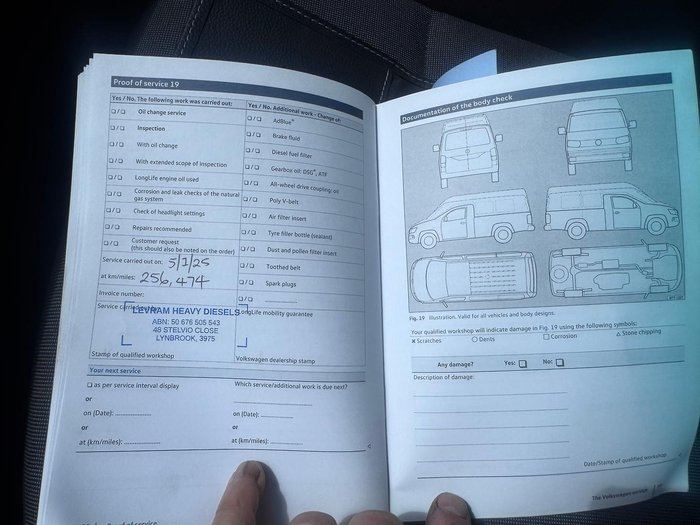 Proof of service 19
Yes / No. The following work was carried out:
❑/❑ Oil change service
❑/❑ Inspection
❑/❑ With oil change
❑/❑ With extended scope of inspection
❑/❑ LongLife engine oil used
❑/❑ Corrosion and leak checks of the natural
gas system
❑/❑ Check of headlight settings
❑/❑ Repairs recommended
❑/❑ Customer request
(this should also be noted on the order)
Service carried out on: 5/1/25
at km/miles: 256,474
Invoice number:
Service carried
LEVRAM HEAVY DIESELS
ABN: 50 676 505 543
48 STELVIO CLOSE
LYNBROOK, 3975
Stamp of qualified workshop
Yes / No. Additional work - Change of:
❑/❑ AdBlue®
❑/❑ Brake fluid
❑/❑ Diesel fuel filter
❑/❑ Gearbox oil: DSG®, ATF
❑/❑ All-wheel drive coupling: oil
❑/❑ Poly V-belt
❑/❑ Air filter insert
❑/❑ Tyre filler bottle (sealant)
❑/❑ Dust and pollen filter insert
❑/❑ Toothed belt
❑/❑ Spark plugs
❑/❑ ....................
LongLife mobility guarantee
Volkswagen dealership stamp
Your next service
❑ as per service interval display
or
on (Date): ....................
or
at (km/miles): ....................
Which service/additional work is due next?
....................
on (Date): ....................
or
at (km/miles): ....................
Proof of service
Documentation of the body check
Fig. 19 Illustration. Valid for all vehicles and body designs.
Your qualified workshop will indicate damage in Fig. 19 using the following symbols:
✕ Scratches ○ Dents □ Corrosion △ Stone chipping
Any damage? Yes: ❑ No: ❑
Description of damage:
Date/Stamp of qualified workshop
The Volkswagen service